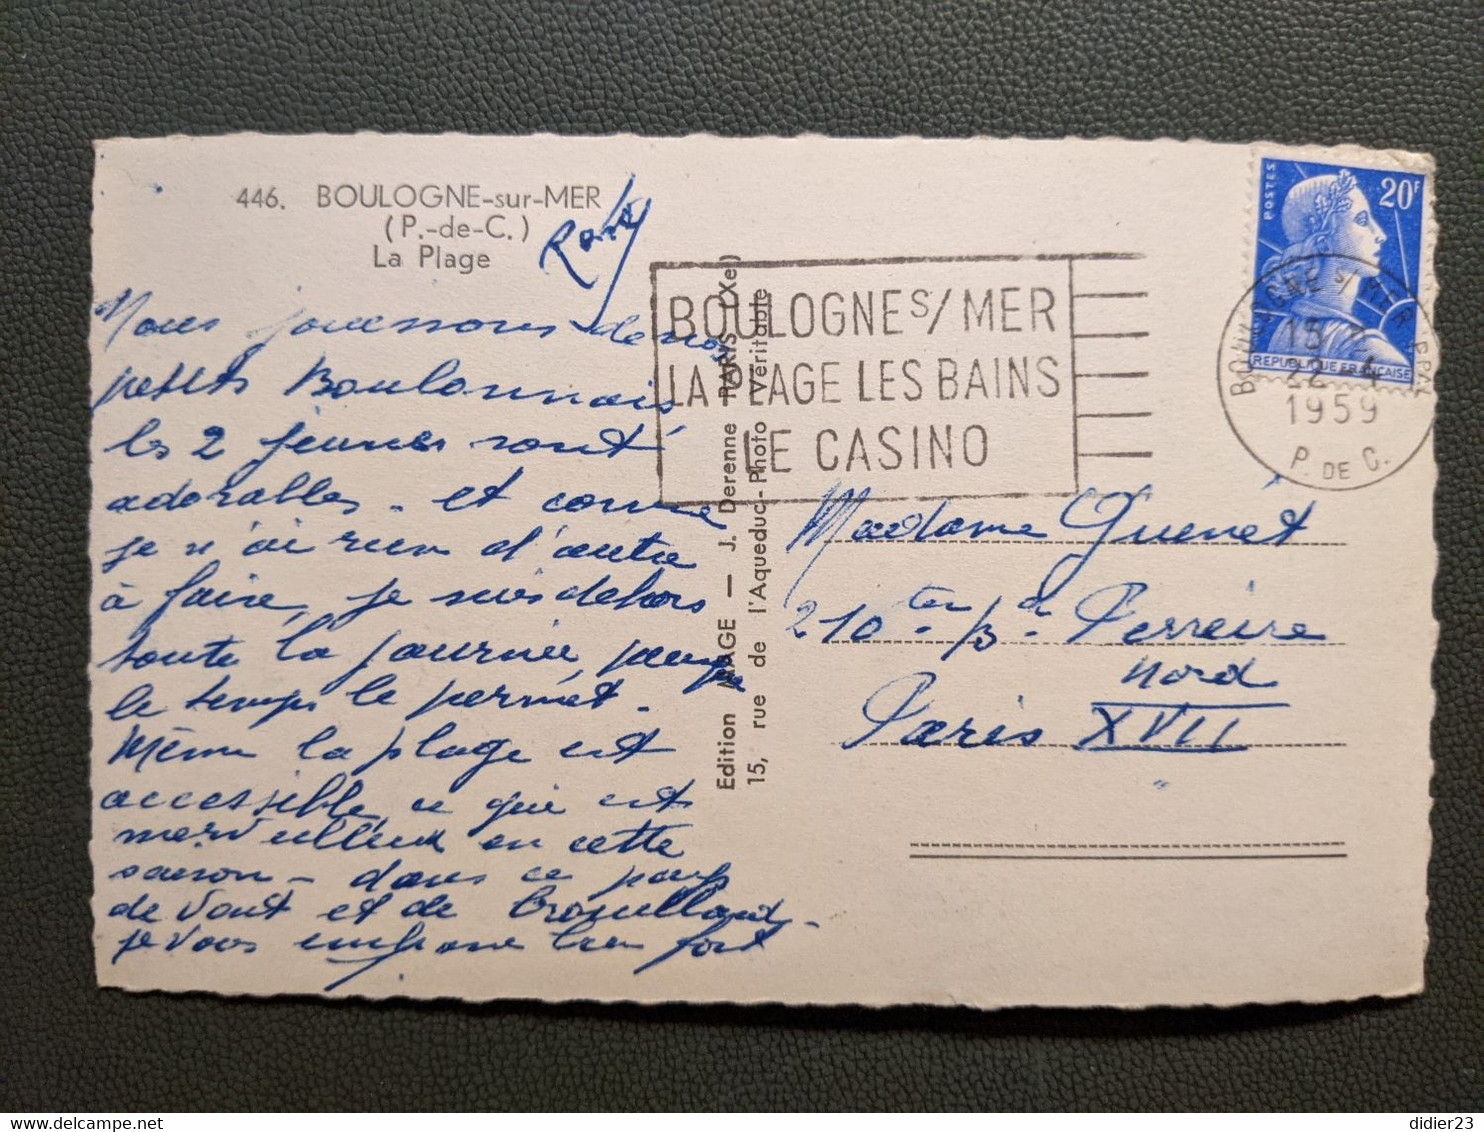 446. BOULOGNE-sur-MER
(P.-de-C.)
La Plage
Nous jouissons de nos
petits Boulonnais
les 2 jeunes sont
adorables. et comme
je n'ai rien d'autre
à faire, je suis dehors
toute la journée puisque
le temps le permet.
Même la plage est
accessible, ce qui est
merveilleux en cette
saison - dans ce pays
de Vent et de Brouillard -
je vous embrasse bien fort
Edition MAGE — J. Derenne PARIS (Xe)
15, rue de l'Aqueduc - Photo Véritable
BOULOGNE S/ MER
LA PLAGE LES BAINS
LE CASINO
POSTES
20F
REPUBLIQUE FRANÇAISE
BOULOGNE S/ MER PPAL
15
22 - 4
1959
P. DE C.
Madame Guenet
210 ter Bd Pereire
Nord
Paris XVII
didier23